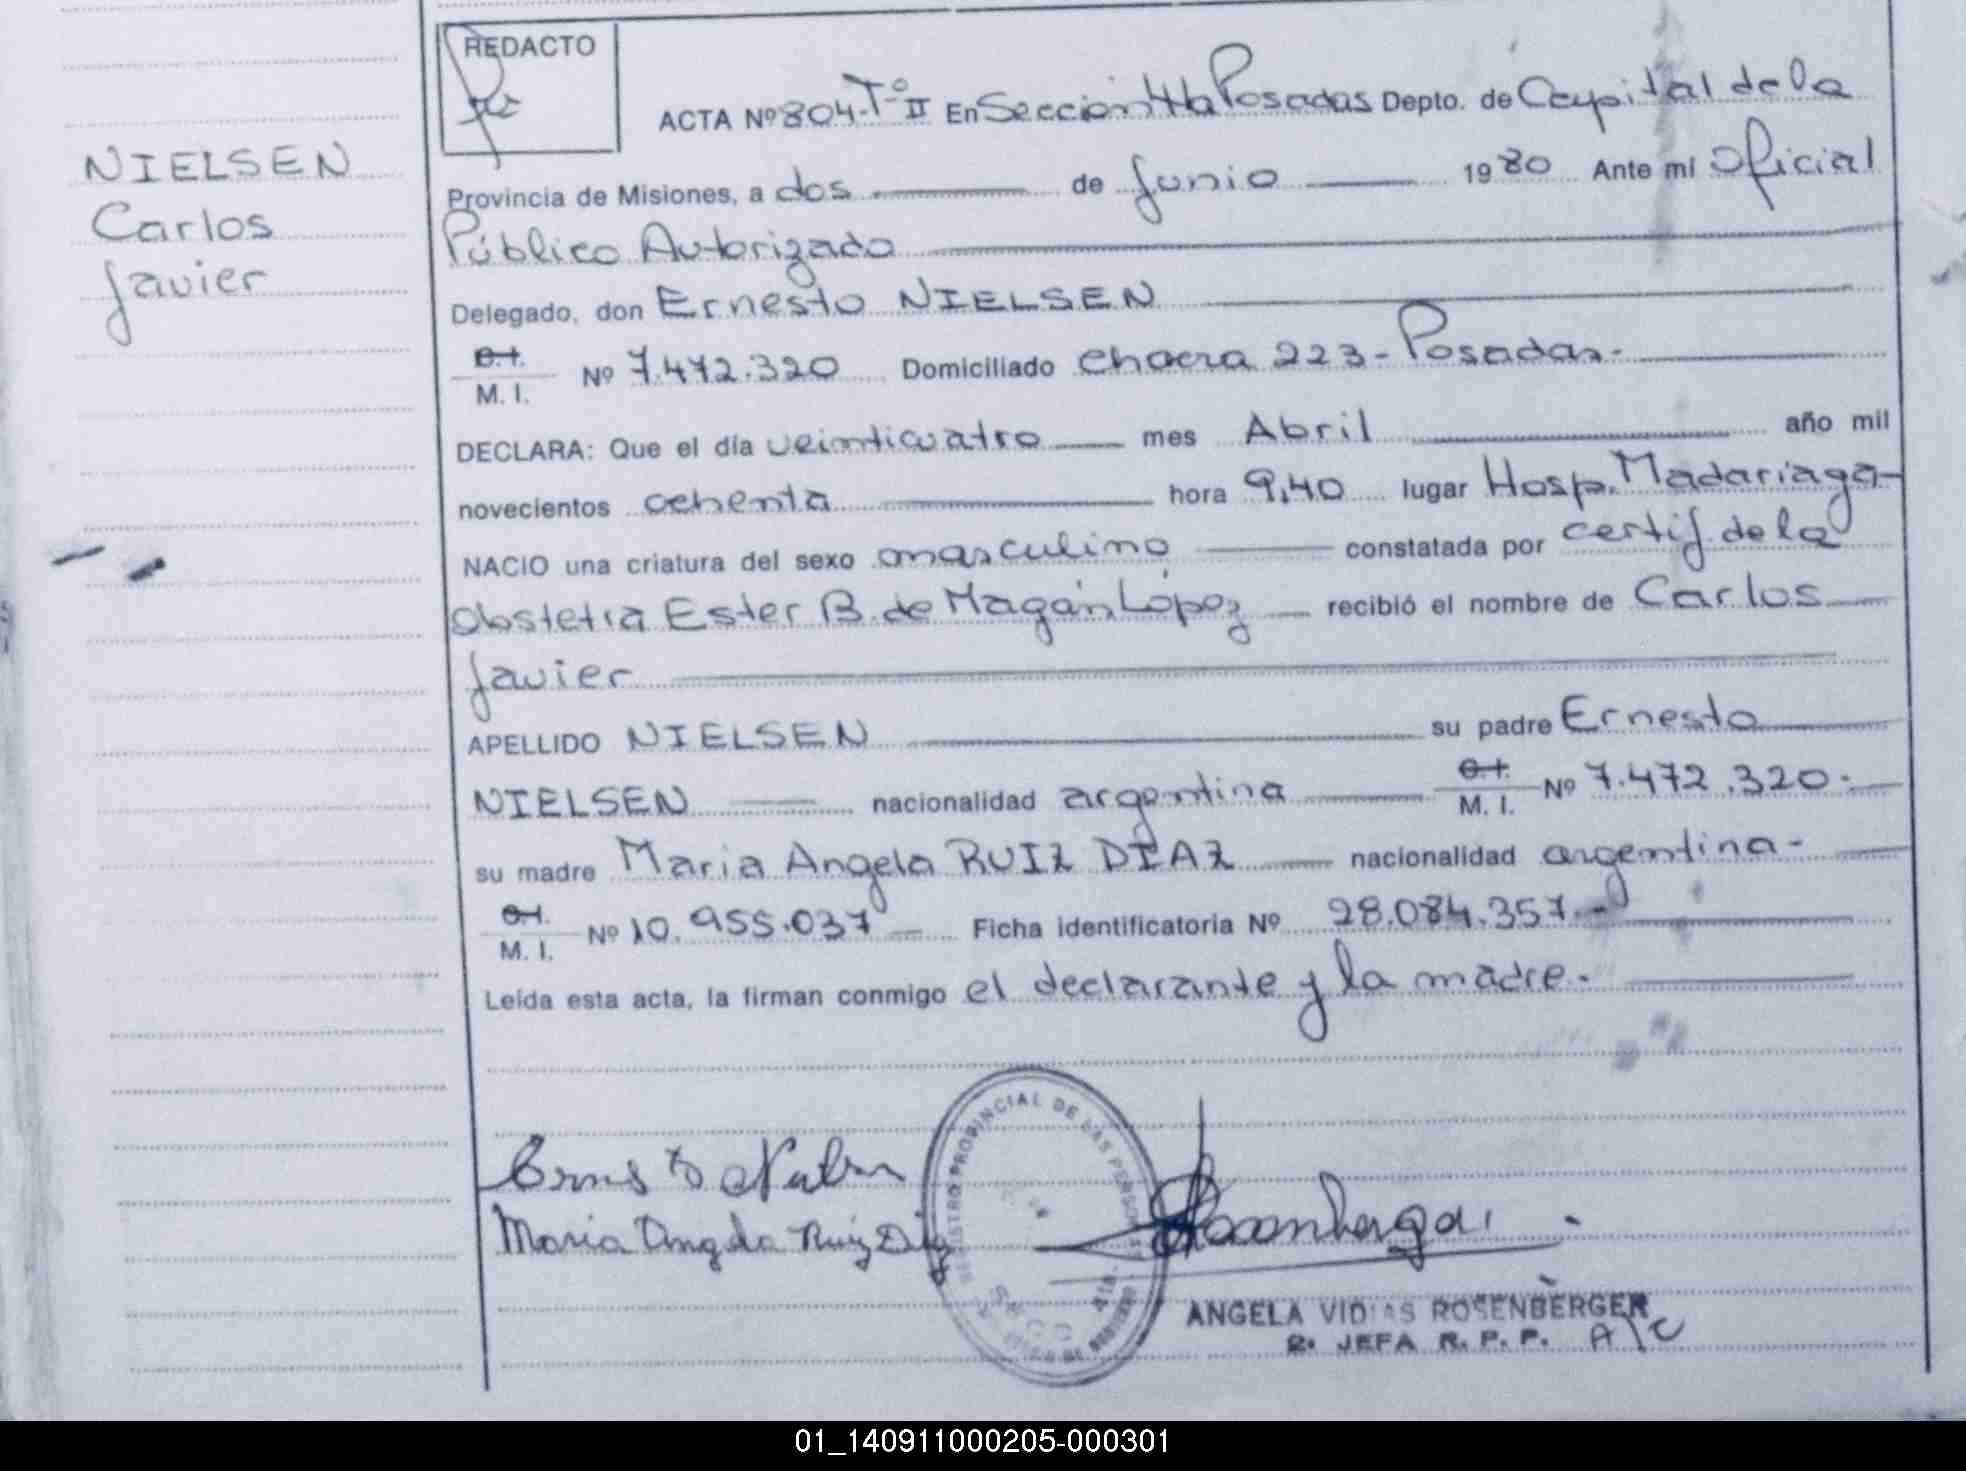 REDACTO
ACTA Nº 804-Tº II En Sección 4ta Posadas Depto. de Capital de la
NIELSEN
Carlos
Javier
Provincia de Misiones, a dos de Junio 1980 Ante mí Oficial
Público Autorizado
Delegado, don Ernesto NIELSEN
C.I.
M. I. Nº 7.472.320 Domiciliado chacra 223-Posadas.-
DECLARA: Que el día veinticuatro mes Abril año mil
novecientos ochenta hora 9,40 lugar Hosp. Madariaga-
NACIO una criatura del sexo masculino constatada por certif. de la
obstetra Ester B. de Magán López recibió el nombre de Carlos
Javier
APELLIDO NIELSEN su padre Ernesto
NIELSEN nacionalidad argentina C.I. M. I. Nº 7.472.320.-
su madre Maria Angela RUIZ DIAZ nacionalidad argentina-
C.I.
M. I. Nº 10.955.037 Ficha identificatoria Nº 28.084.357.-
Leída esta acta, la firman conmigo el declarante y la madre.
REGISTRO PROVINCIAL DE LAS PERSONAS
Maria Angela Ruiz Diaz
ANGELA VIDIAS ROSENBERGER
2. JEFA R. P. P. A/C
01_140911000205-000301